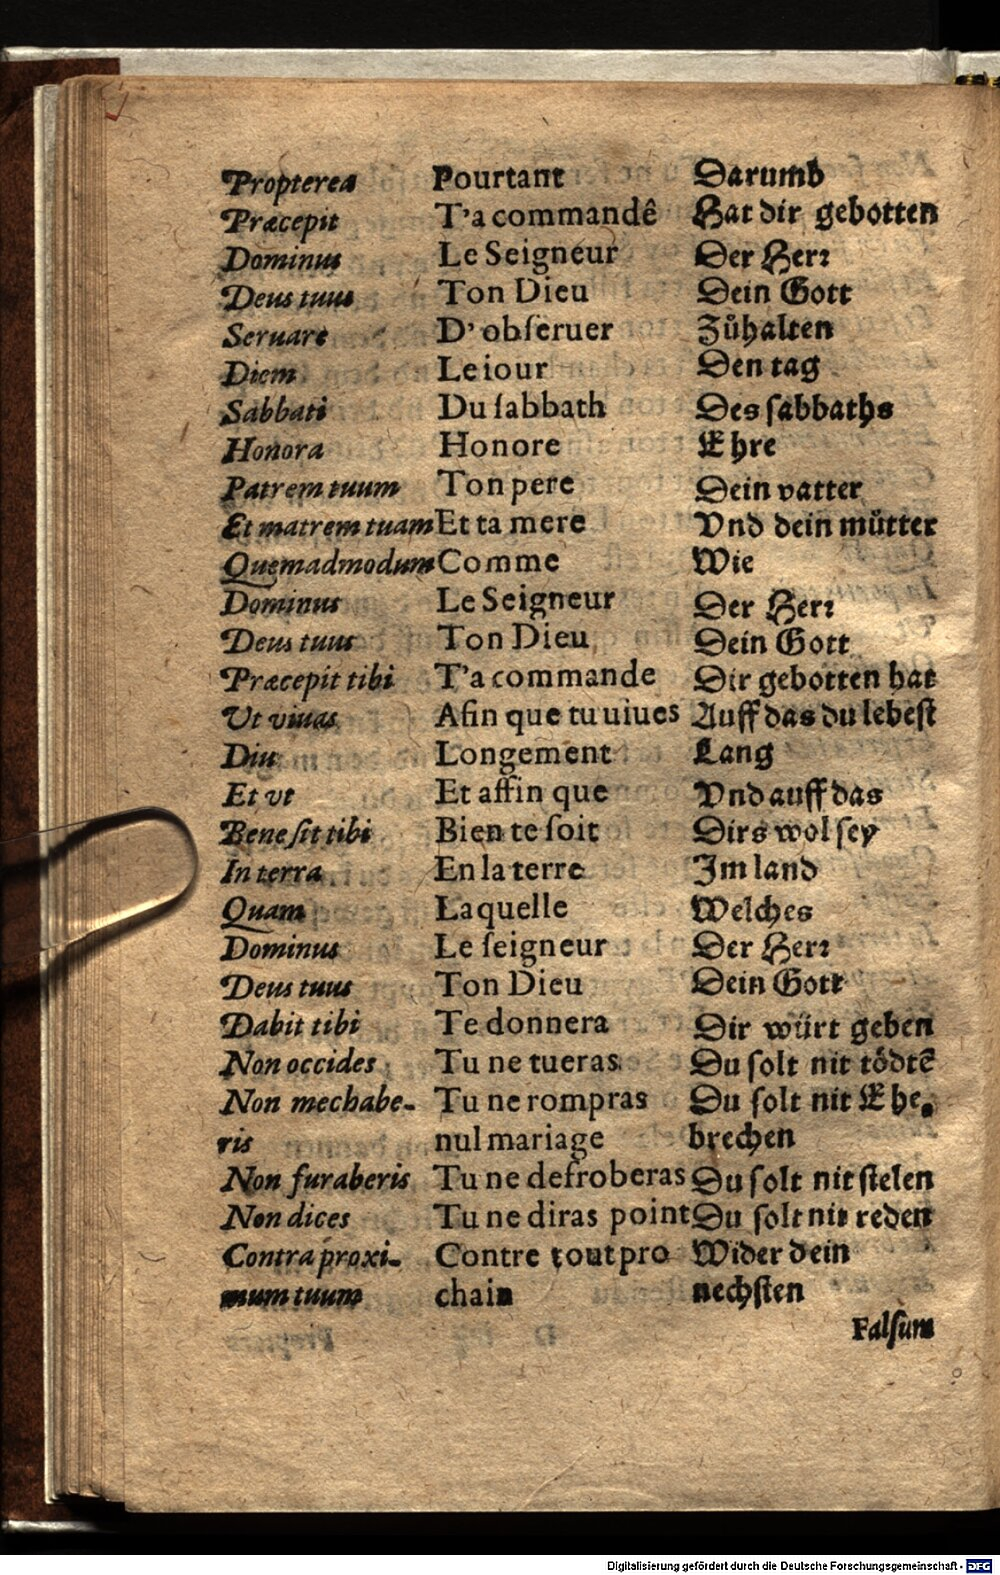 Propterea Pourtant Darumb
Præcepit T'a commandê Hat dir gebotten
Dominus Le Seigneur Der Herr
Deus tuus Ton Dieu Dein Gott
Seruare D'obſeruer Zůhalten
Diem Le iour Den tag
Sabbati Du ſabbath Des ſabbaths
Honora Honore Ehre
Patrem tuum Ton pere Dein vatter
Et matrem tuam Et ta mere Vnd dein můtter
Quemadmodum Comme Wie
Dominus Le Seigneur Der Herr
Deus tuus Ton Dieu Dein Gott
Præcepit tibi T'a commande Dir gebotten hat
Vt viuas Afin que tu uiues Auff das du lebeſt
Diu Longement Lang
Et vt Et affin que Vnd auff das
Bene ſit tibi Bien te ſoit Dirs wol ſey
In terra En la terre Im land
Quam Laquelle Welches
Dominus Le ſeigneur Der Herr
Deus tuus Ton Dieu Dein Gott
Dabit tibi Te donnera Dir würt geben
Non occides Tu ne tueras Du ſolt nit tödtē
Non mechabe- Tu ne rompras Du ſolt nit Ehe-
ris nul mariage brechen
Non furaberis Tu ne deſroberas Du ſolt nit ſtelen
Non dices Tu ne diras point Du ſolt nit reden
Contra proxi- Contre tout pro Wider dein
mum tuum chain nechſten
Falſum
Digitalisierung gefördert durch die Deutsche Forschungsgemeinschaft - DFG